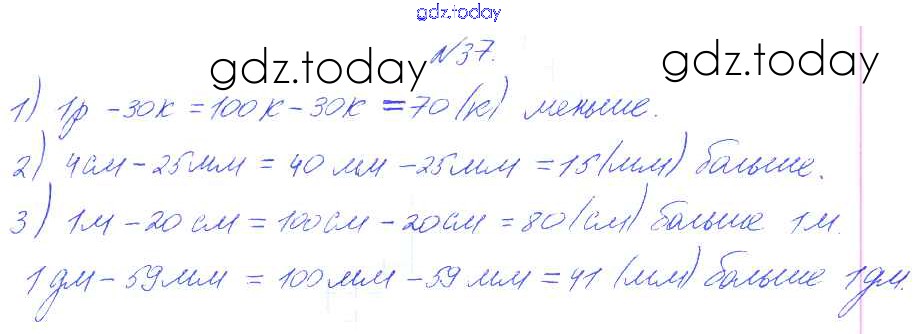 gdz.today
№37.
gdz.today gdz.today
1) 1р - 30к = 100к - 30к = 70(к) меньше.
2) 4см - 25мм = 40мм - 25мм = 15(мм) больше.
3) 1м - 20см = 100см - 20см = 80(см) больше 1м.
1дм - 59мм = 100мм - 59мм = 41(мм) больше 1дм.